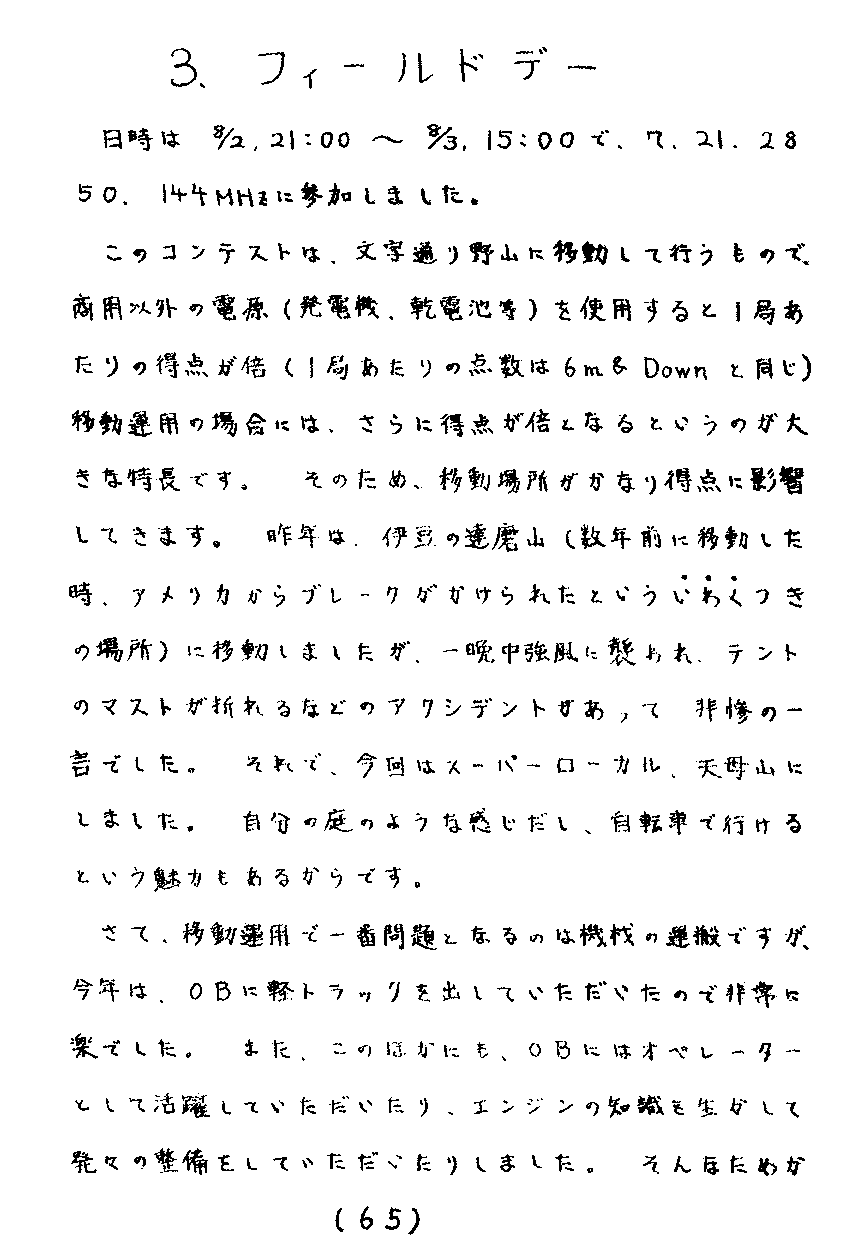 3. フィールドデー
日時は 8/2, 21:00 ～ 8/3, 15:00で、7、21、28
50、144MHzに参加しました。
このコンテストは、文字通り野山に移動して行うもので、
商用以外の電源(発電機、乾電池等)を使用すると1局あ
たりの得点が倍(1局あたりの点数は6m&Downと同じ)
移動運用の場合には、さらに得点が倍となるというのが大
きな特長です。 そのため、移動場所がかなり得点に影響
してきます。 昨年は、伊豆の達磨山(数年前に移動した
時、アメリカからブレークがかけられたといういわくつき
の場所)に移動しましたが、一晩中強風に襲われ、テント
のマストが折れるなどのアクシデントがあって 非惨の一
言でした。 それで、今回はスーパーローカル、天母山に
しました。 自分の庭のような感じだし、自転車で行ける
という魅力もあるからです。
さて、移動運用で一番問題となるのは機材の運搬ですが、
今年は、OBに軽トラックを出していただいたので非常に
楽でした。 また、このほかにも、OBにはオペレーター
として活躍していただいたり、エンジンの知識を生かして
発々の整備をしていただいたりしました。 そんなためか
(65)